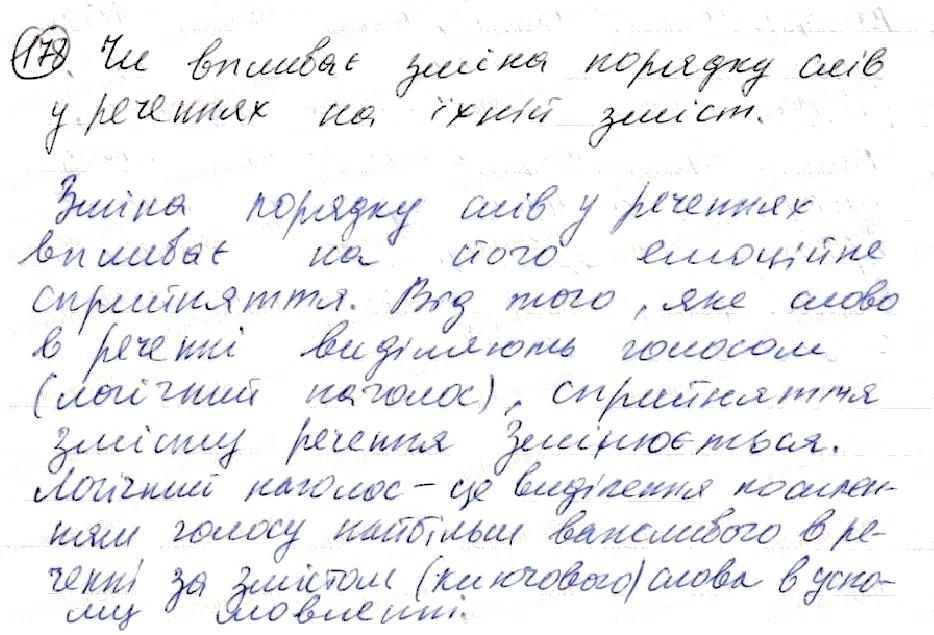 178. Чи впливає зміна порядку слів
у реченнях на їхній зміст.
Зміна порядку слів у реченнях
впливає на його емоційне
сприйняття. Від того, яке слово
в реченні виділяють голосом
(логічний наголос), сприйняття
змісту речення змінюється.
Логічний наголос – це виділення посилен-
ням голосу найбільш важливого в ре-
ченні за змістом (ключового) слова в усно-
му мовленні.